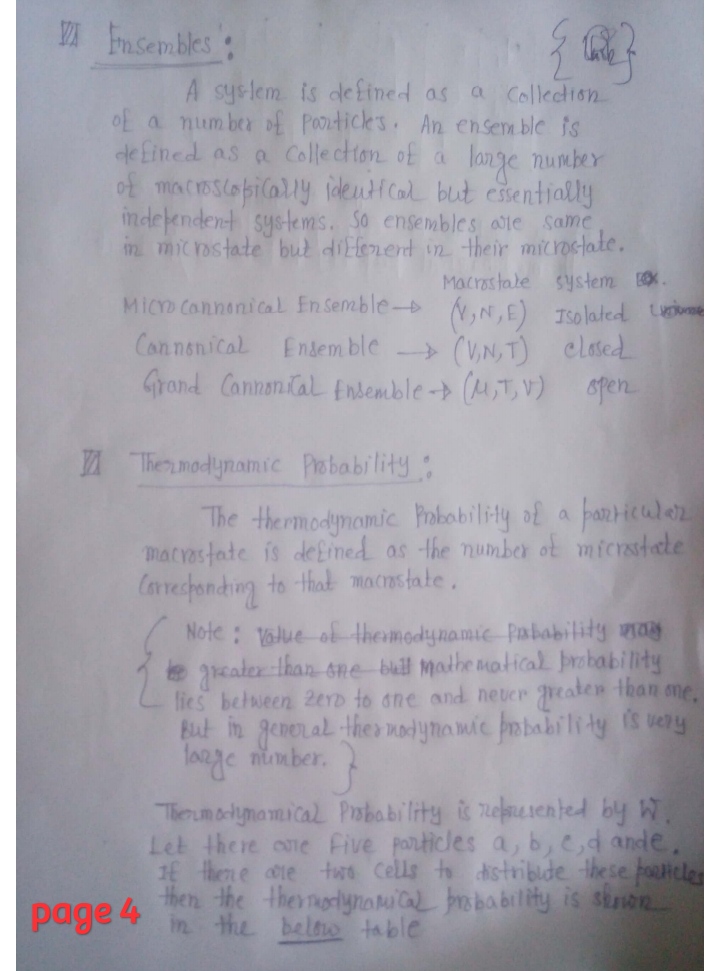 VI Ensembles :
A system is defined as a collection
of a number of particles. An ensemble is
defined as a collection of a large number
of macroscopically identical but essentially
independent systems. So ensembles are same
in microstate but different in their microstate.
Macrostate system ex.
Microcannonical Ensemble → (V,N,E) Isolated
Cannonical Ensemble → (V,N,T) closed
Grand Cannonical Ensemble → (μ,T,V) open
VI Thermodynamic Probability :
The thermodynamic Probability of a particular
macrostate is defined as the number of microstate
Corresponding to that macrostate.
{ Note : Value of thermodynamic Probability may
be greater than one but Mathematical probability
lies between zero to one and never greater than one.
But in general thermodynamic probability is very
large number. }
Thermodynamical Probability is represented by W.
Let there are five particles a, b, c, d and e.
If there are two cells to distribute these particles
then the thermodynamical probability is shown
in the below table
page 4